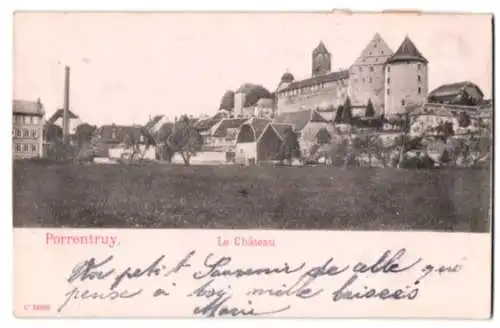 Porrentruy. Le Château.
petit Souvenir de celle qui
pense à toi mille baisers
Marie